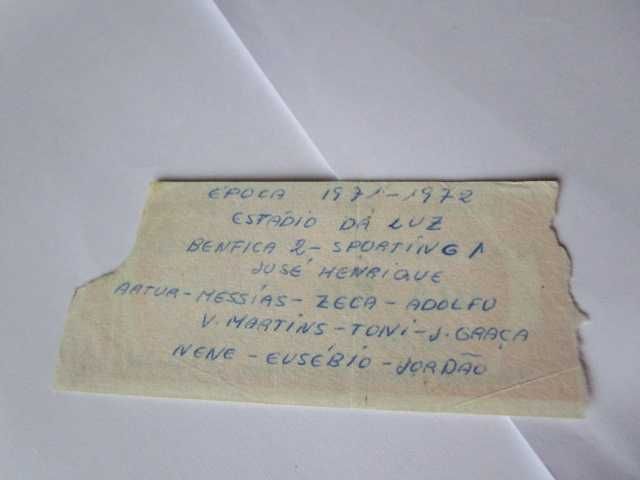 ÉPOCA 1971-1972
ESTÁDIO DA LUZ
BENFICA 2 - SPORTING 1
JOSÉ HENRIQUE
ARTUR - MESSIAS - ZECA - ADOLFO
V. MARTINS - TONI - J. GRAÇA
NENE - EUSÉBIO - JORDÃO